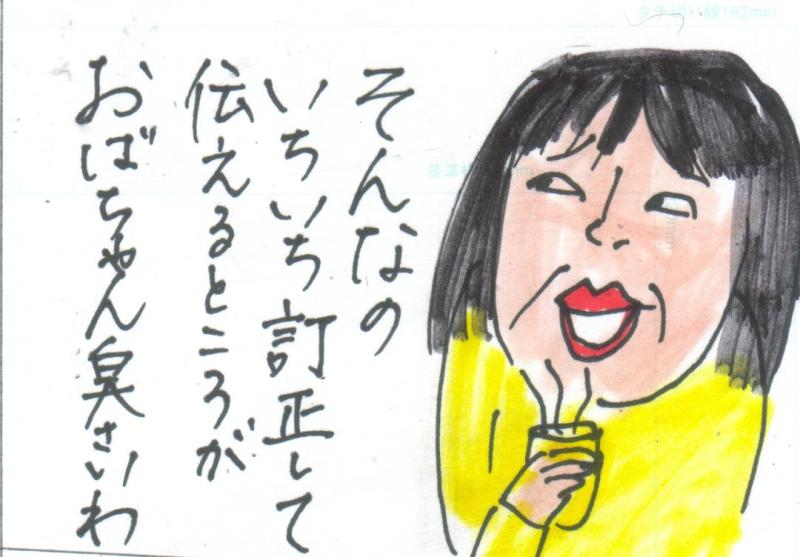 タチ切り線182mm
そんなの
いちいち訂正して
伝えるところが
おばちゃん臭さいわ